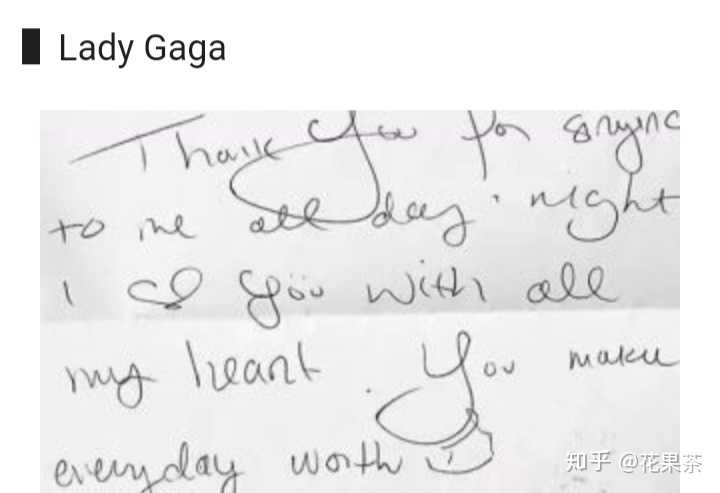 Lady Gaga
Thank you for singing
to me all day · night
I ♡ you with all
my heart. You make
everyday worth
知乎 @花果茶